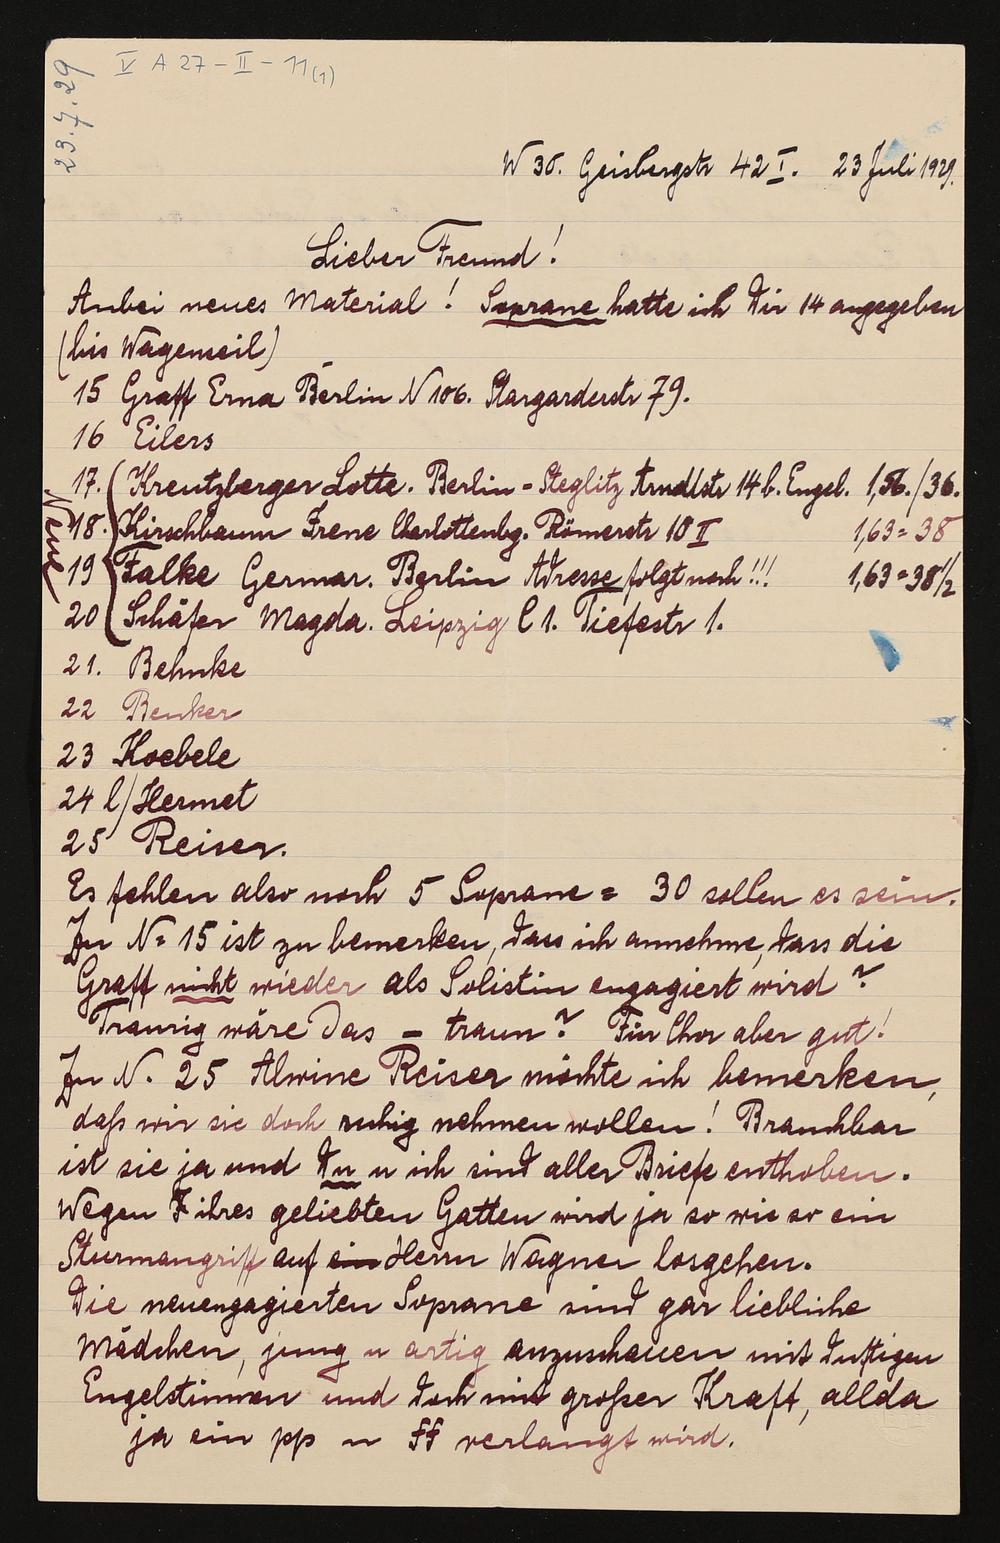 V A 27 - II - 11(1)
23.7.29
W 30. Geisbergstr 42 I. 23 Juli 1929.
Lieber Freund!
Anbei neues Material! Soprane hatte ich Dir 14 angegeben
(bis Wagenseil)
15 Graff Erna Berlin N 106. Stargarderstr 79.
16 Eilers
Neue
17. Kreutzberger Lotte. Berlin - Steglitz Arndtstr 14 b. Engel. 1,56./36.
18. Kirschbaum Irene Charlottenbg. Römerstr 10 II 1,63 = 38
19 Falke Germar. Berlin Adresse folgt noch!!! 1,63 = 38 1/2
20 Schäfer Magda. Leipzig C 1. Tiefestr 1.
21. Behnke
22 Benker
23 Koebele
24 l/Hermet
25 Reiser.
Es fehlen also noch 5 Soprane = 30 sollen es sein.
Zu N= 15 ist zu bemerken, dass ich annehme, dass die
Graff nicht wieder als Solistin engagiert wird?
Traurig wäre das - traun? Für Chor aber gut!
Zu N. 25 Alwine Reiser möchte ich bemerken,
daß wir sie doch ruhig nehmen wollen! Brauchbar
ist sie ja und Du u ich sind aller Briefe enthoben.
Wegen ihres geliebten Gatten wird ja so wie so ein
Sturmangriff auf ein Herrn Wagner losgehen.
Die neuengagierten Soprane sind gar liebliche
Mädchen, jung u artig anzuschauen mit duftigen
Engelstimmen und doch mit großer Kraft, allda
ja ein pp u ff verlangt wird.